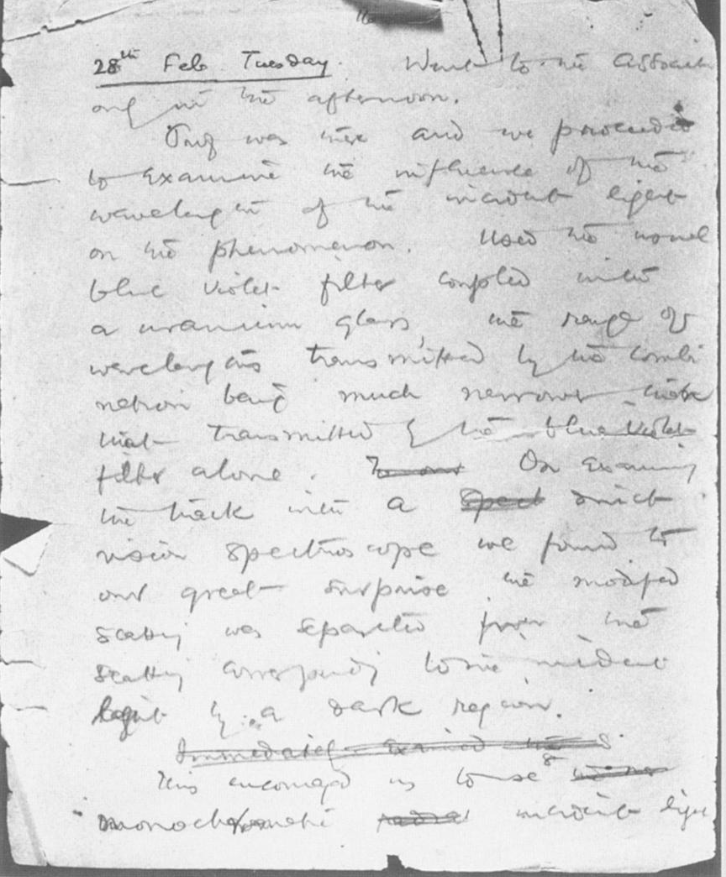 28th Feb Tuesday. Went to the Associn
only in the afternoon.
was there and we proceeded
to examine the influence of the
wavelength of the incident light
on the phenomenon. Used the usual
blue violet filter coupled with
a uranium glass, the range of
wavelengths transmitted by the combi
nation being much narrower than
that transmitted by the blue violet
filter alone. On examining
the track with a Spect direct
vision spectroscope we found to
our great surprise the modified
scattg was separated from the
scattg correspondg to the incident
light by a dark region.
Immediately examined the S.
This encouraged us to use
monochromatic incident light